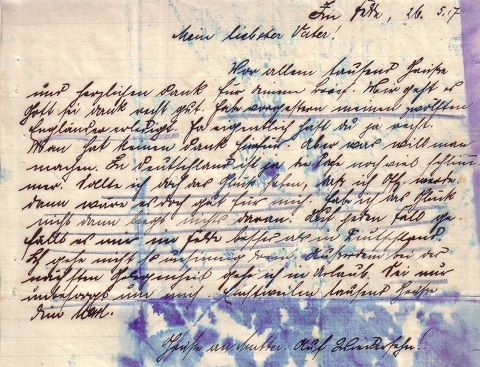 Im Felde, 26. 5. 17
Mein liebster Vater!
Vor allem tausend Grüsse
und herzlichen Dank für deinen Brief. Mir geht es
Gott sei dank recht gut. Habe vorgestern meinen zwölften
Engländer erledigt. Ja eigentlich hast du ja recht.
Man hat keinen Dank hiefür. Aber was will man
machen. In Deutschland ist ja die Lage noch viel schlim-
mer. Sollte ich doch das Glück haben, daß ich Offz. werde
dann wäre es doch gut für mich. Hab ich das Glück
nicht dann liegt nichts daran. Auf jeden Fall ge-
fällt es mir im Felde besser als in Deutschland.
Es geht nicht so
nächsten Gelegenheit gehe ich in Urlaub. Sei nur
unbesorgt um mich. Einstweilen tausend Grüsse
dein Karl.
Grüsse an Mutter. Auf Wiedersehn!